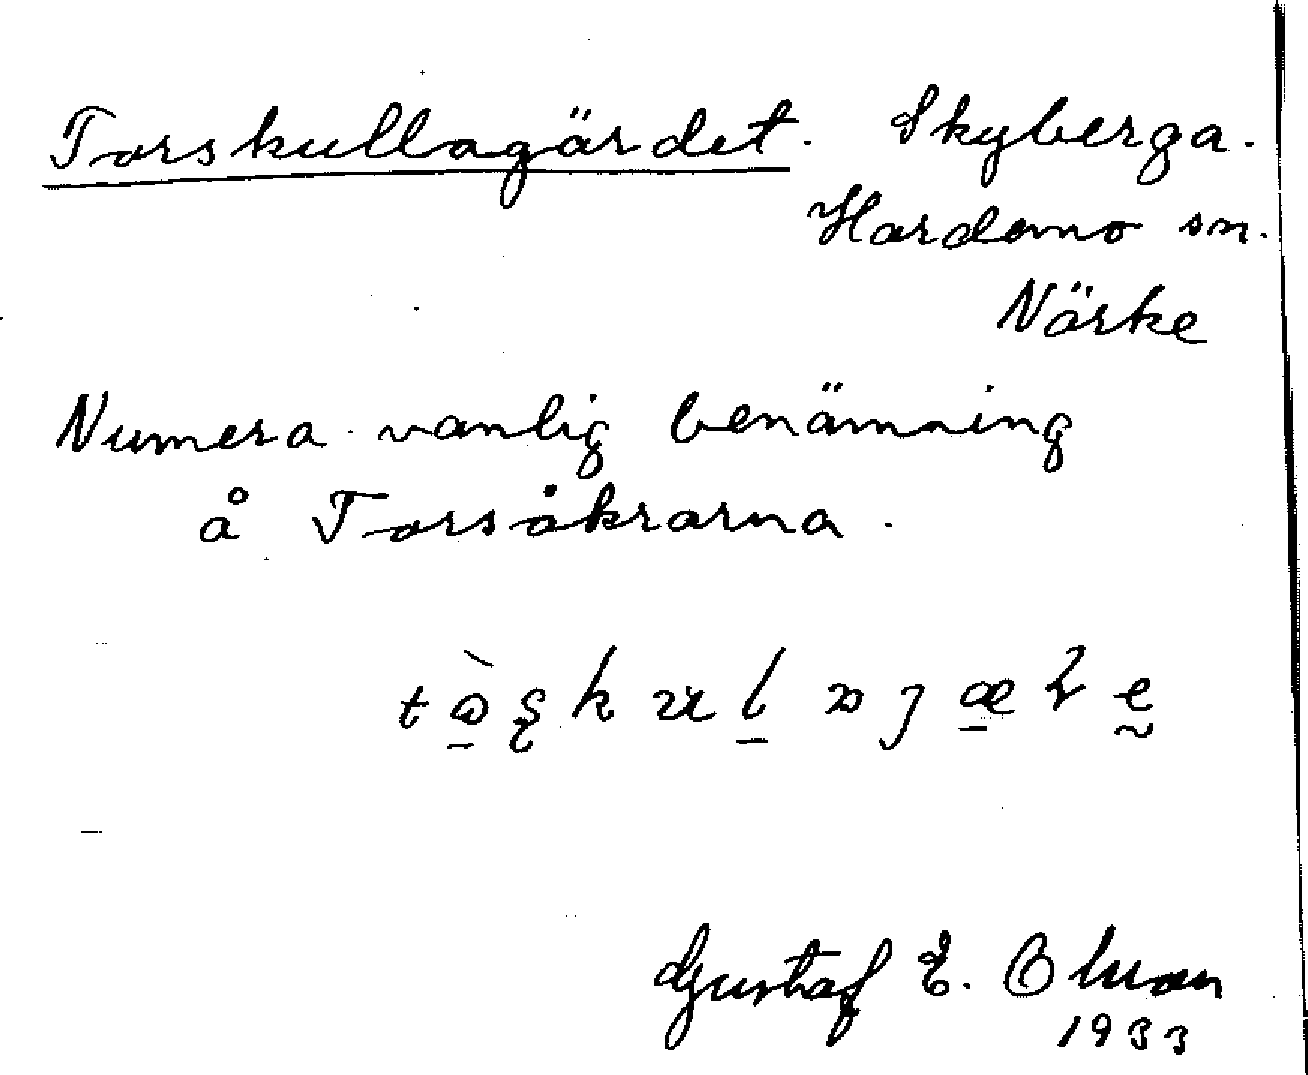 Torskullagärdet. Skyberga.
Hardemo sn.
Närke
Numera vanlig benämning
å Torsåkrarna.
Gustaf E. Olson
1933